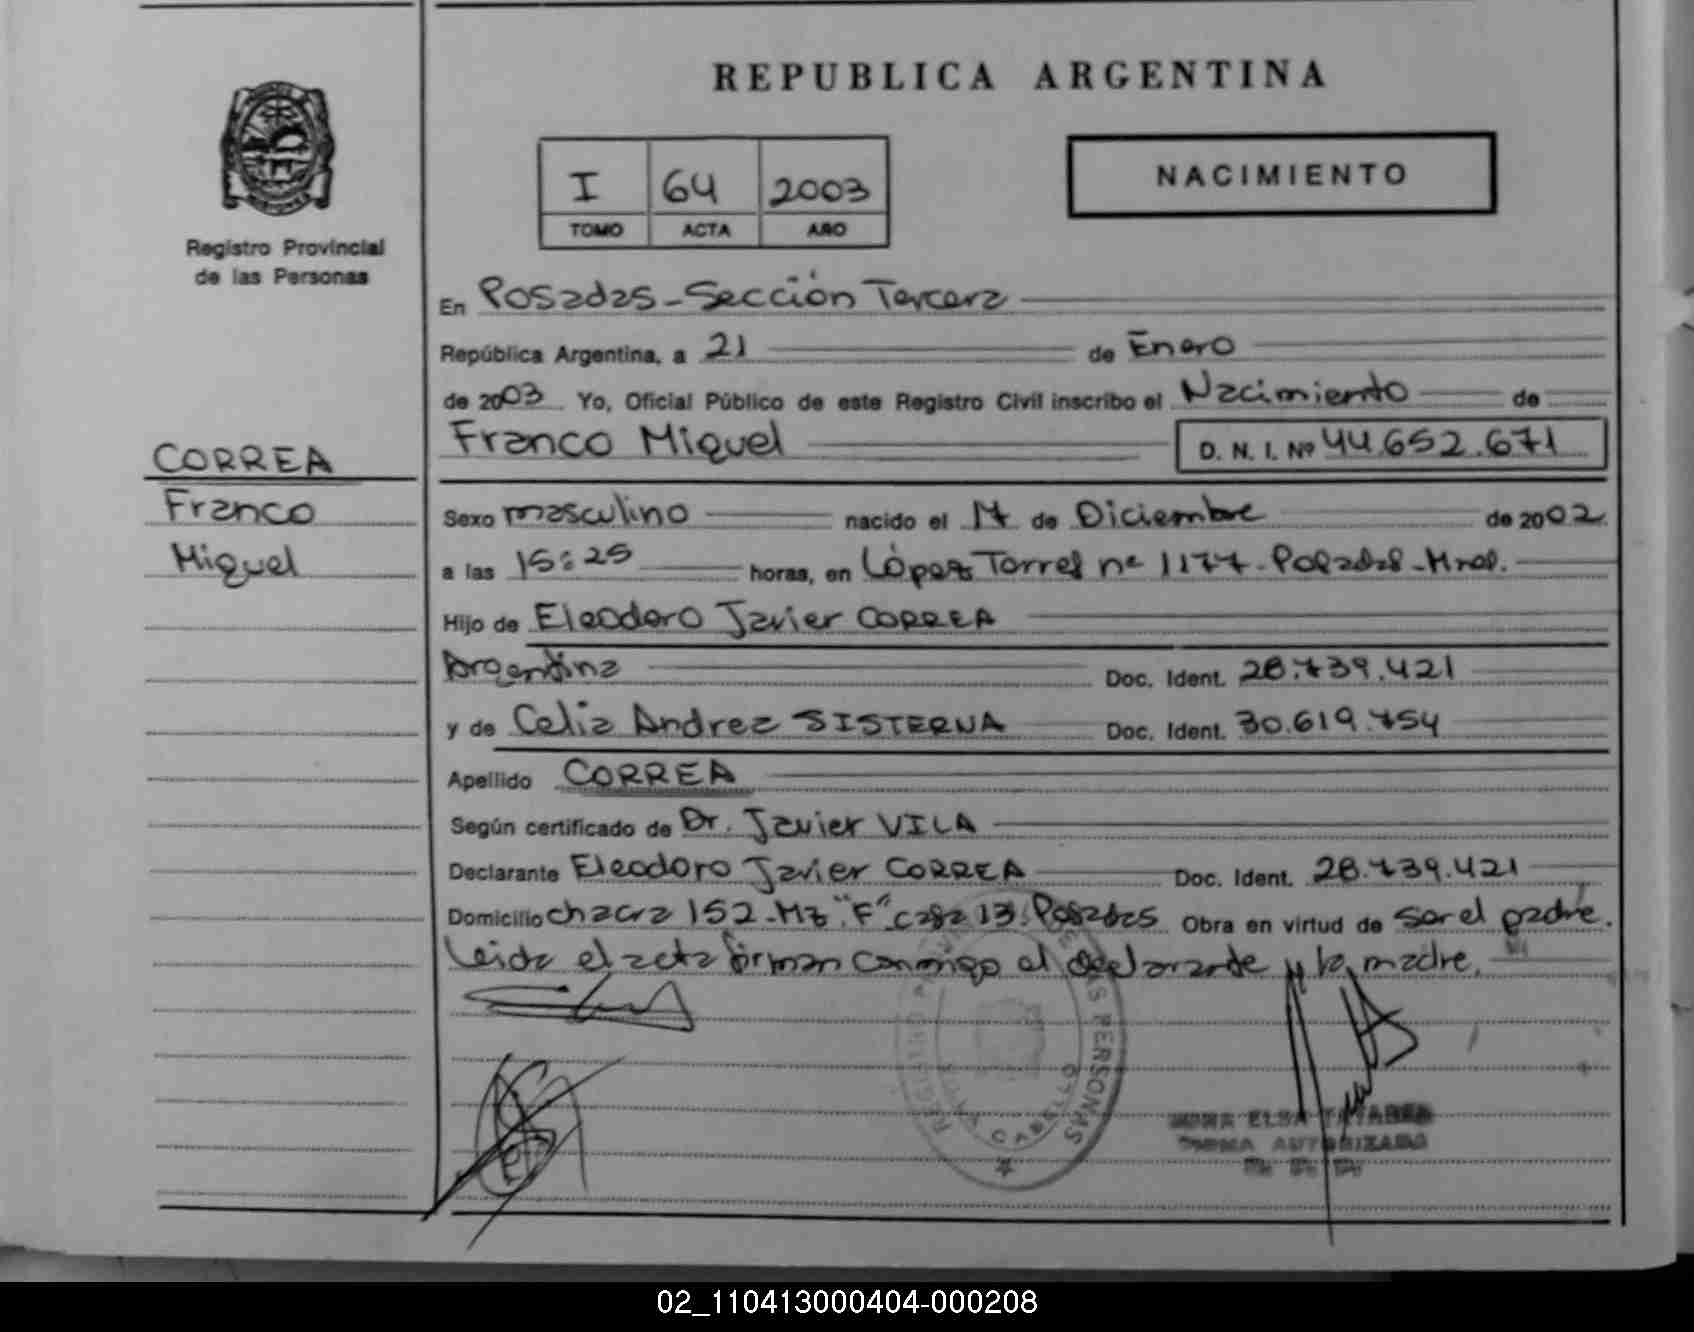 REPUBLICA ARGENTINA
I 64 2003
TOMO ACTA AÑO
NACIMIENTO
Registro Provincial
de las Personas
En Posadas - Sección Tercera
República Argentina, a 21 de Enero
de 2003 Yo, Oficial Público de este Registro Civil inscribo el Nacimiento de
Franco Miguel D. N. I. Nº 44.652.671
CORREA
Franco
Miguel
Sexo masculino nacido el 17 de Diciembre de 2002
a las 15:25 horas, en López Torres nº 1177 - Posadas - Mnes.
Hijo de Eleodoro Javier CORREA
Argentina Doc. Ident. 28.739.421
y de Celia Andrea SISTERNA Doc. Ident. 30.619.754
Apellido CORREA
Según certificado de Dr. Javier VILA
Declarante Eleodoro Javier CORREA Doc. Ident. 28.739.421
Domicilio chacra 152 - Mz "F" casa 13. Posadas Obra en virtud de ser el padre.
Leida el acta firman conmigo el declarante y la madre.
REGISTRO DE LAS PERSONAS
CABELLO
ELSA
FIRMA AUTORIZADA
02_110413000404-000208